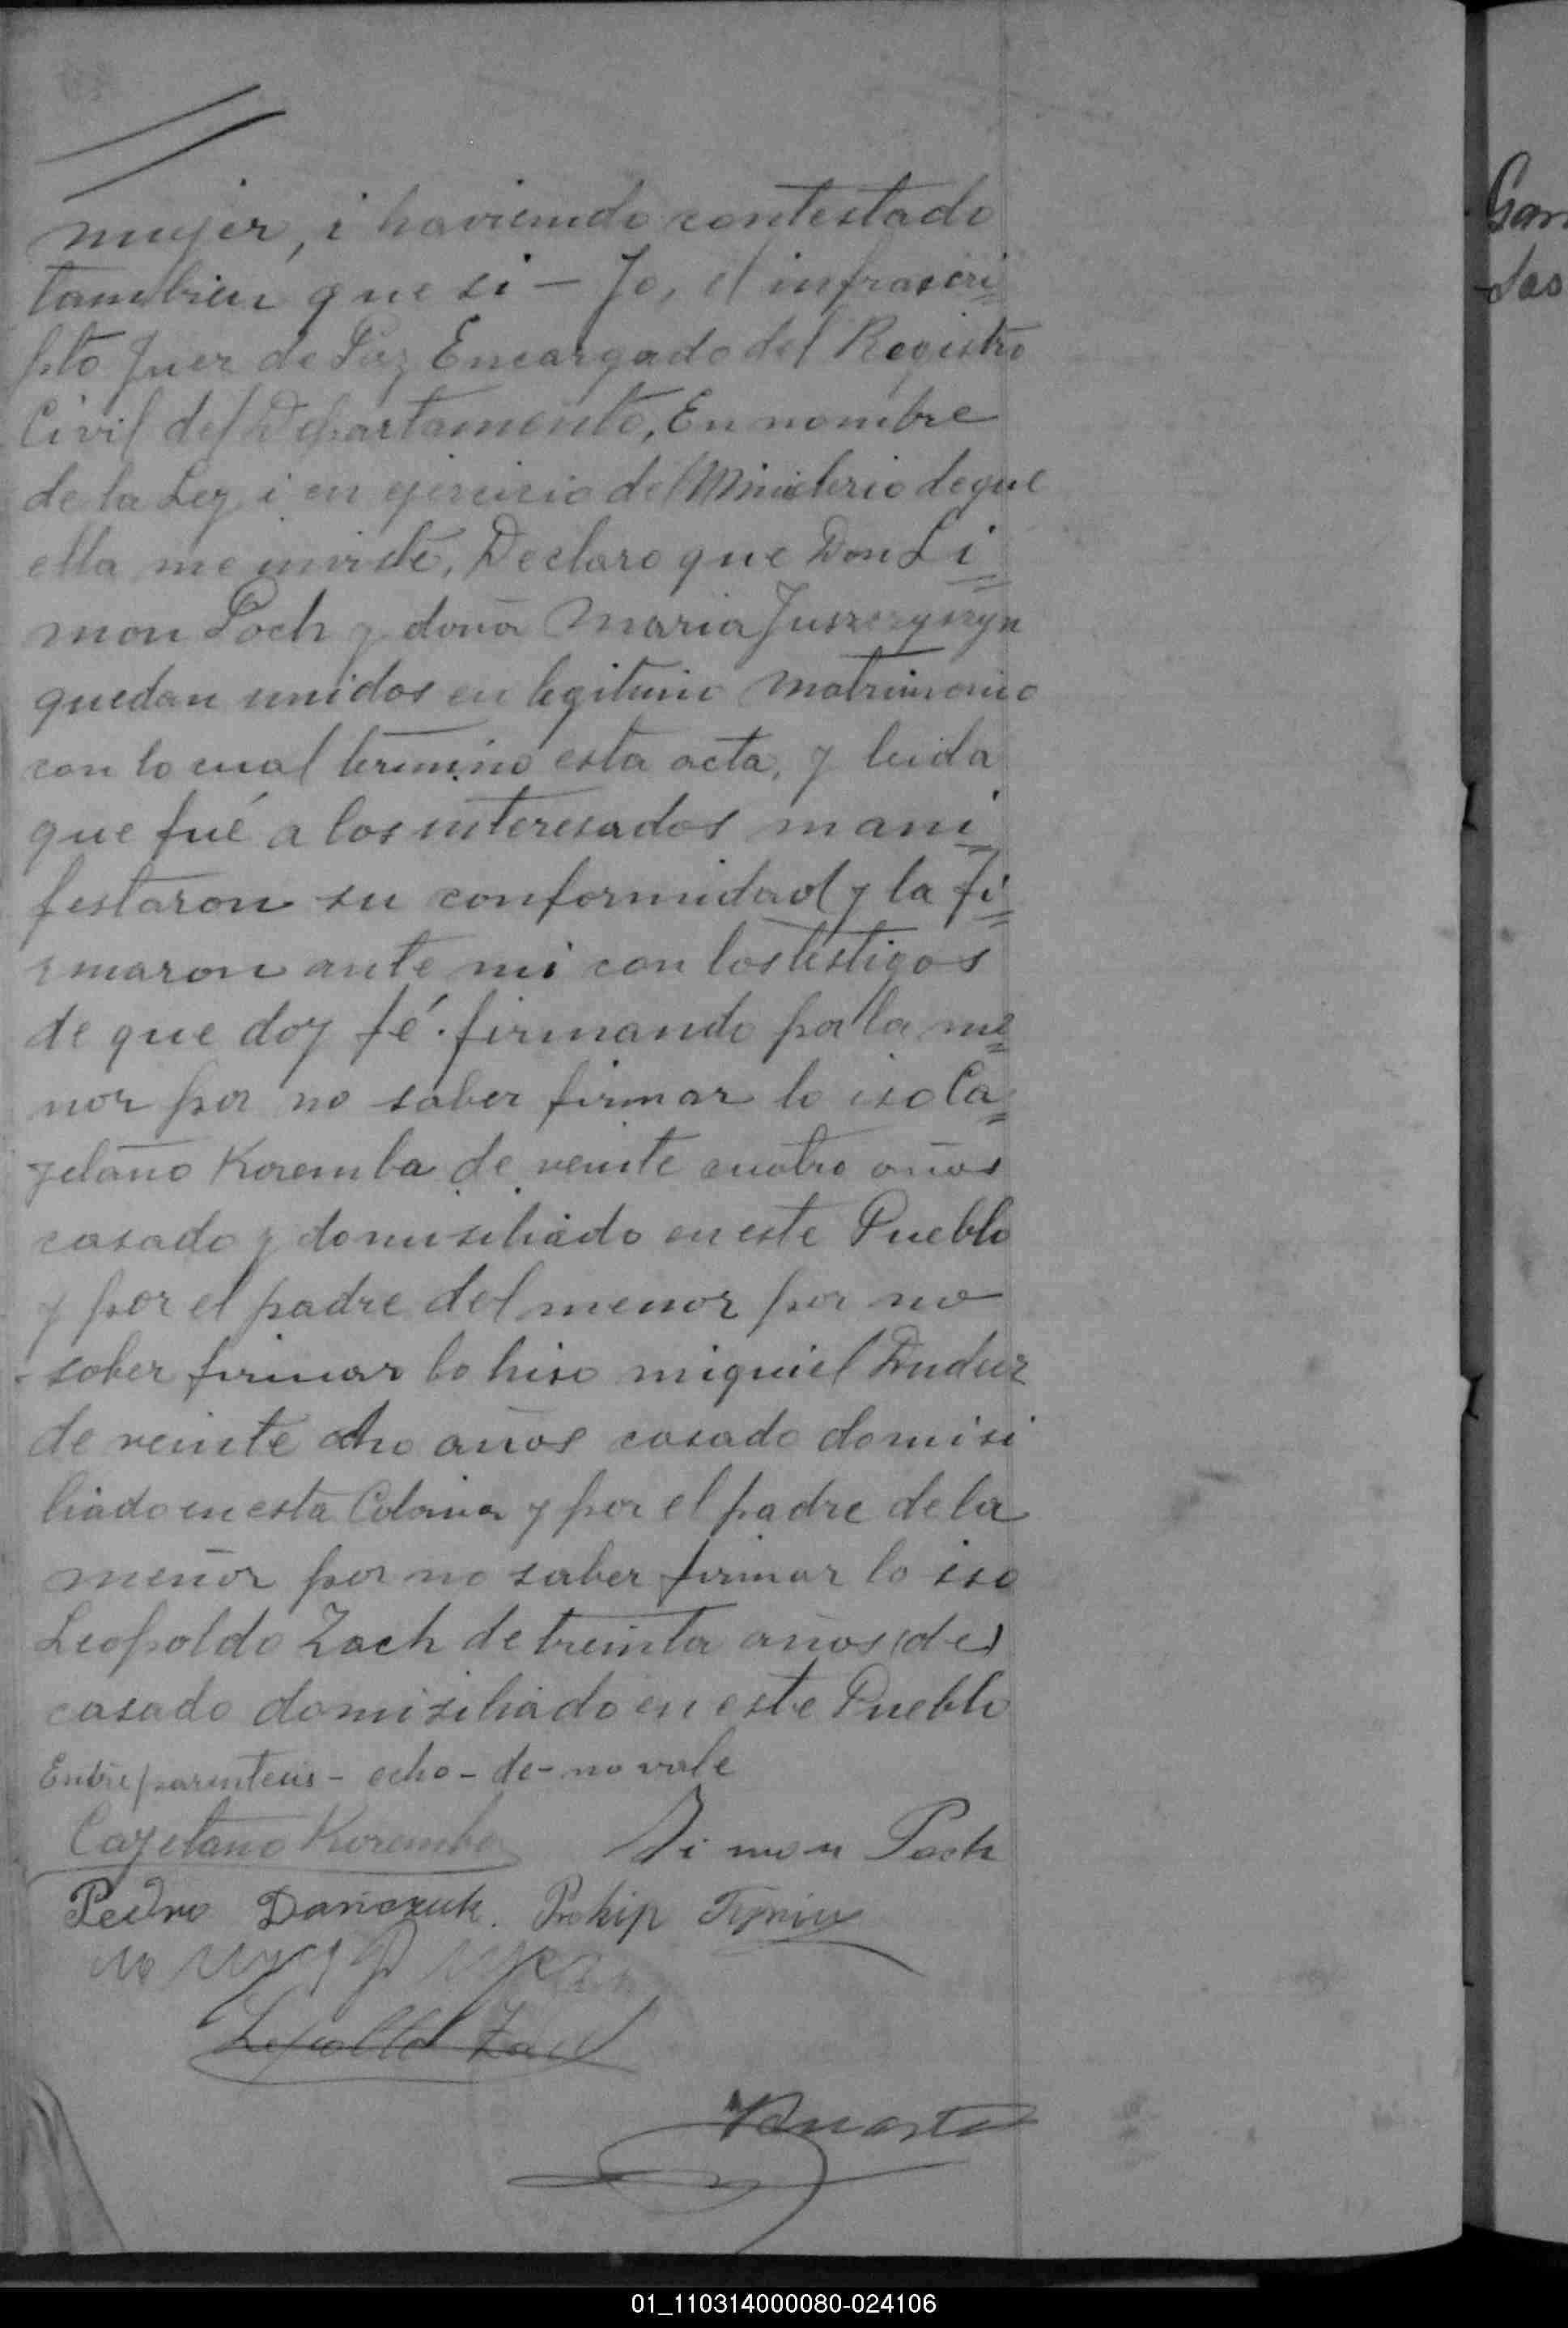 mujer, i haviendo contestado
tambien que si – Jo, el infrascri=
pto Juez de Paz Encargado del Registro
Civil del Departamento, En nombre
de la Ley i en ejercicio del Ministerio de que
ella me inviste, Declaro que Don Si=
mon Poch y doña Maria Juszczyszyn
quedan unidos en legitimo Matrimonio
con lo cual termino esta acta, y leida
que fué a los interesados mani=
festaron su conformidad y la fi=
rmaron ante mi con los testigos
de que doy fé. firmando por la me=
nor por no saber firmar lo iso Ca=
yetano Koremba de veinte cuatro años
casado y domisiliado en este Pueblo
y por el padre del menor por no
saber firmar lo hiso miguiel Duduz
de veinte ocho años casado domisi
liado en esta Colonia y por el padre de la
menor por no saber firmar lo iso
Leopoldo Zach de treinta años (de)
casado domisiliado en este Pueblo
Entre parentecis – ocho – de – no vale
Cayetano Koremba Simon Poch
Pedro Dańczuk. Prokip
Gar
das
01_110314000080-024106